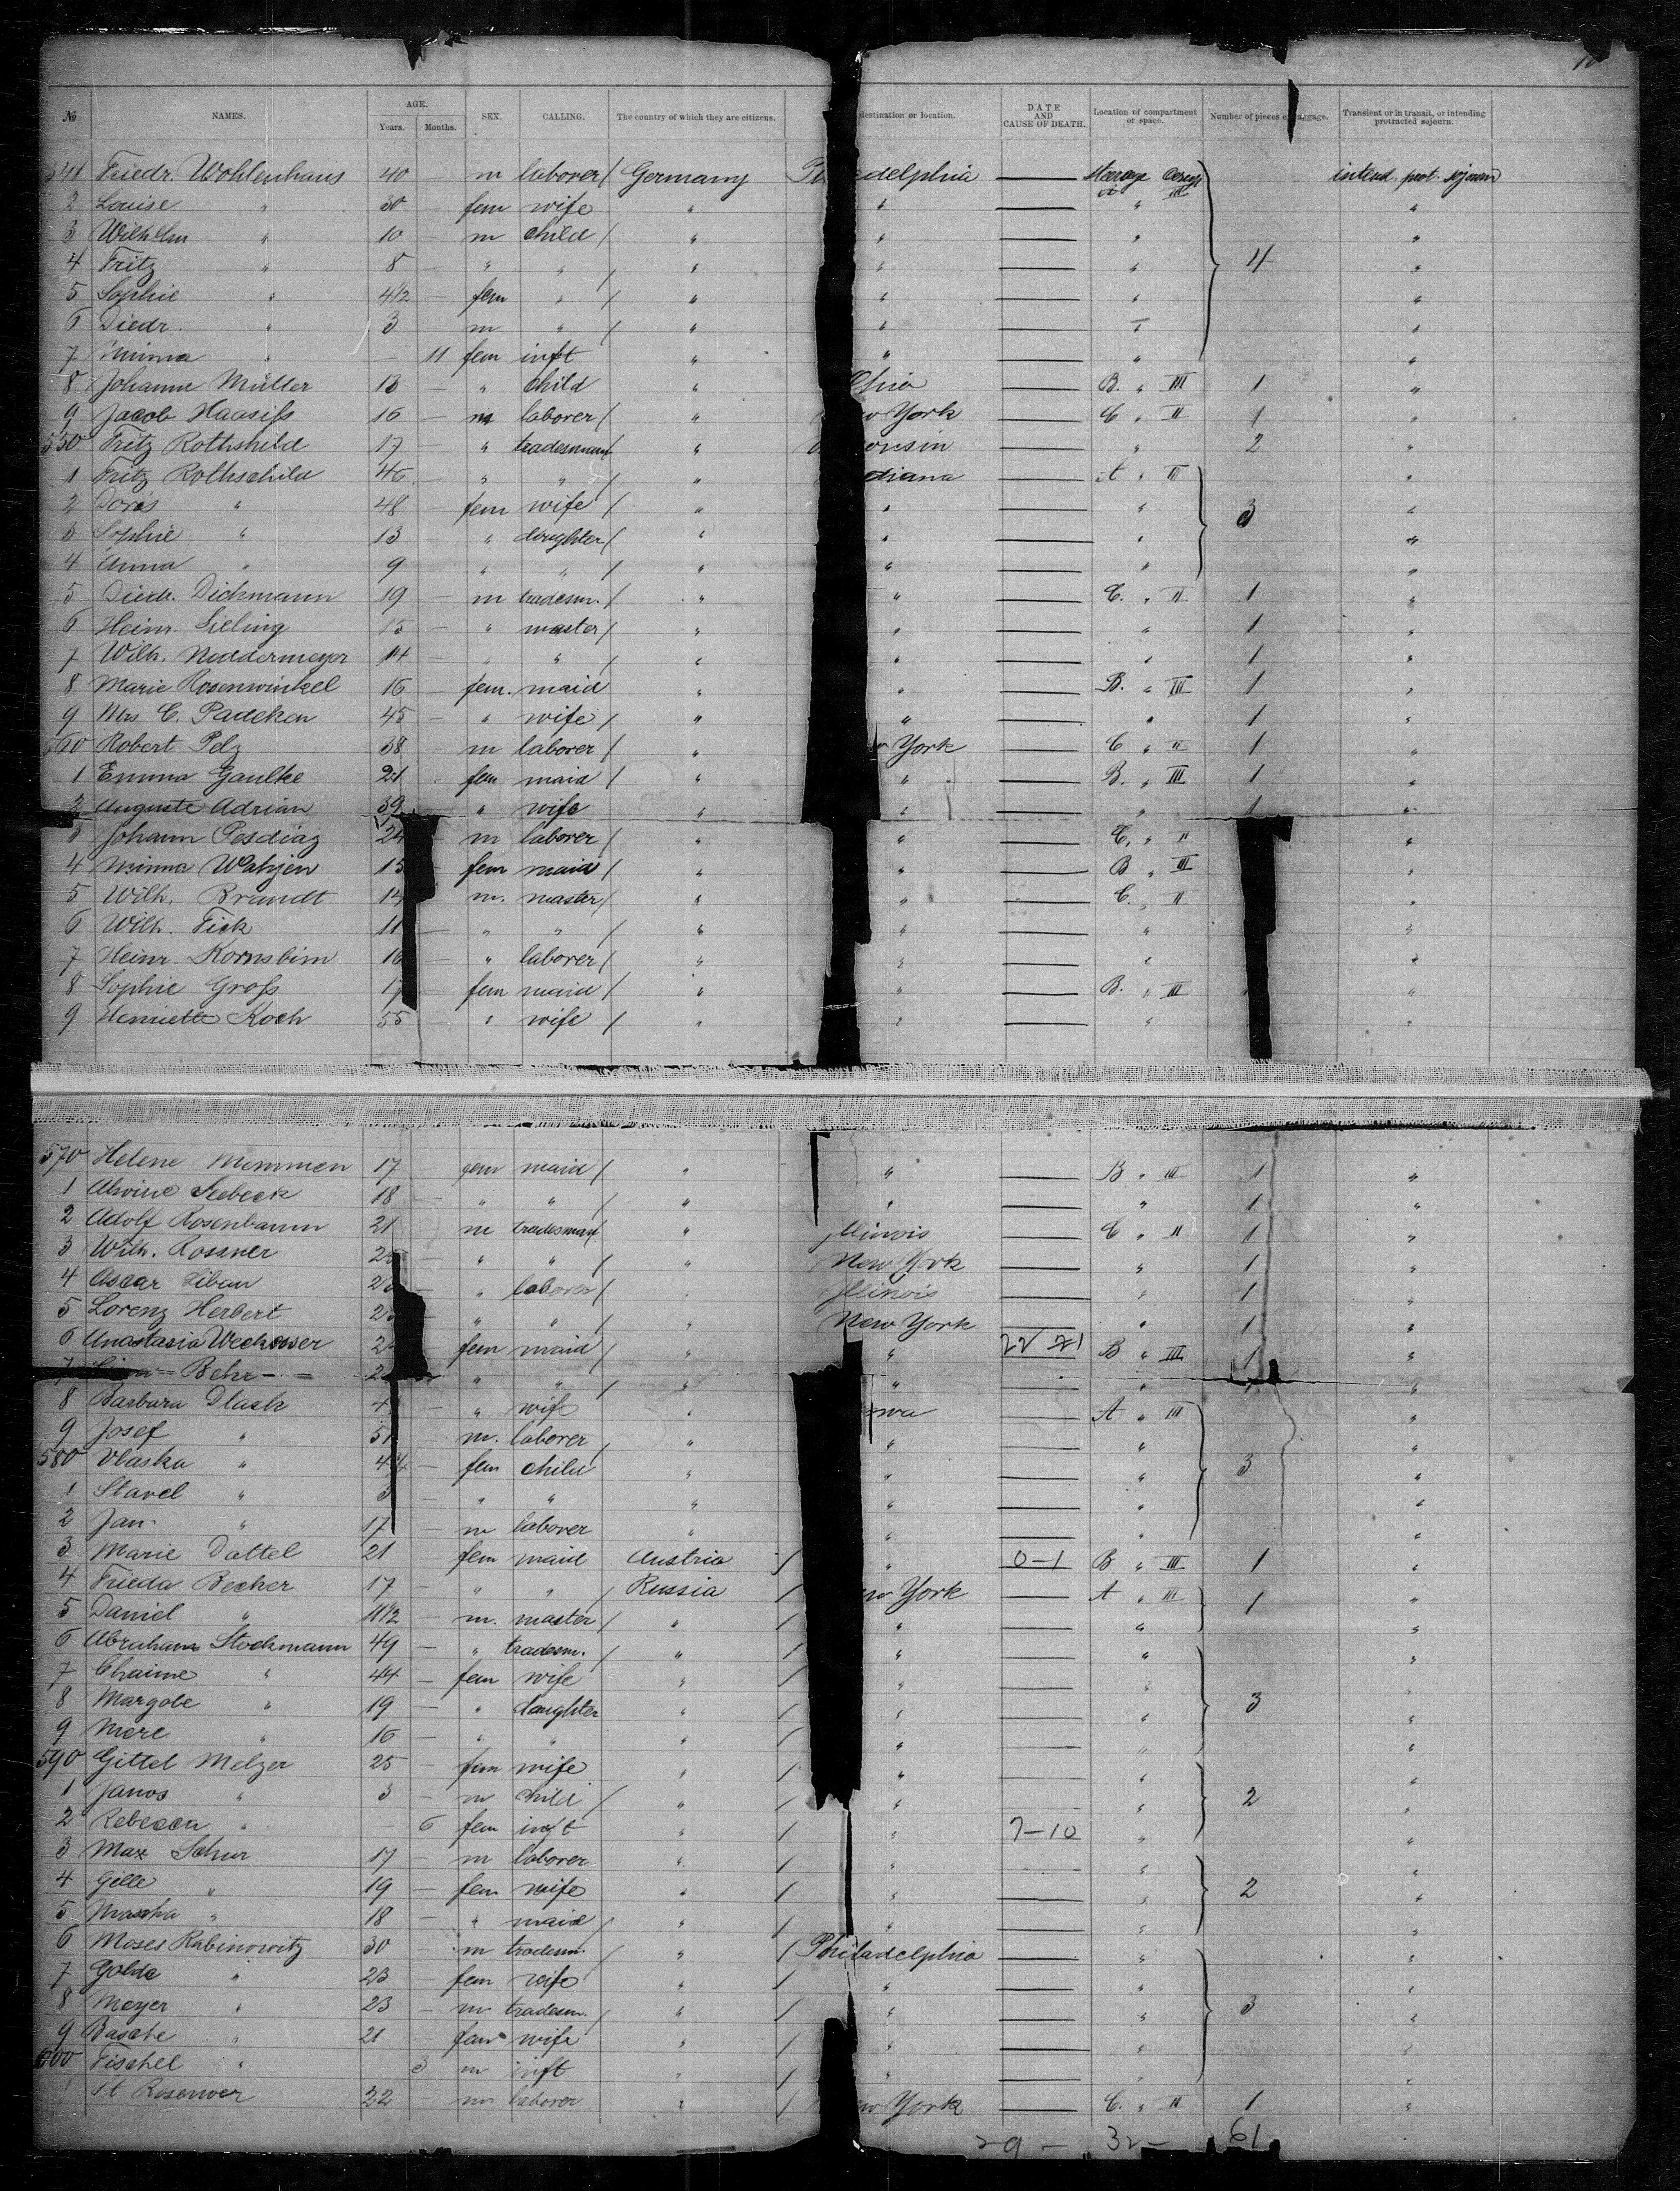 10
№ NAMES. AGE. Years. Months. SEX. CALLING. The country of which they are citizens. destination or location. DATE AND CAUSE OF DEATH. Location of compartment or space. Number of pieces of baggage. Transient or in transit, or intending protracted sojourn.
541 Friedr. Wohlenhaus 40 — m laborer / Germany delphia — Steerage III intend. prot. sojourn
2 Louise " 30 — fem wife " " — " "
3 Wilhelm " 10 — m child / " " — " "
4 Fritz " 8 — " " / " " — " 4 "
5 Sophie " 4 1/2 — fem " / " " — " "
6 Diedr. " 3 — m " / " " — " "
7 Minna " — 11 fem inft " " — " "
8 Johanne Müller 13 — " child " Ohio — B. " III 1 "
9 Jacob Haasiss 16 — m laborer / " w York — C " II 1 "
550 Fritz Rothshild 17 — " tradesman / " onsin — " 2 "
1 Fritz Rothschild 46 — " " / " diana — A " III "
2 Doris " 48 — fem wife / " " — " 3 "
3 Sophie " 13 — " daughter / " " — " "
4 Anna " 9 — " " / " " — " "
5 Diedr. Dickmann 19 — m tradesm. / " " — C. " II 1 "
6 Heinr. Sieling 15 — " master / " " — " 1 "
7 Wilh. Neddermeyer 14 — " " / " " — " 1 "
8 Marie Rosenwinkel 16 — fem. maid " " — B. " III 1 "
9 Mrs C. Padeken 45 — " wife / " " — " 1 "
560 Robert Pelz 38 — m laborer / " w York — C " II 1 "
1 Emma Gaulke 21 fem maid / " " — B. " III 1 "
2 Auguste Adrian 39 — " wife " " — " 1 "
3 Johann Pesdiaz m laborer / " " — C. " II "
4 Minna Wahjen 15 fem maid / " " — B " III "
5 Wilh. Brandt 14 m. master / " " — C. " II "
6 Wilh. Fick 11 — " " / " " — " "
7 Heinr. Kornsbim 16 " laborer / " " — " "
8 Sophie Gross 17 fem maid / " " — B. " III "
9 Henriette Koch 55 — " wife / " " — " "
570 Helene Memmen 17 — fem maid / " " — B " III 1 "
1 Alwine Seebeck 18 — " " / " " — " 1 "
2 Adolf Rosenbaum 21 — m tradesman / " Illinois — C " II 1 "
3 Wilh. Rossner " " / " New York — " 1 "
4 Oscar Liban " laborer / " Illinois — " 1 "
5 Lorenz Herbert " " / " New York — " 1 "
6 Anastasia fem maid / " " B " III 1 "
7 Behr " " / " " — " "
8 Barbara Dlask — " wife " wa — A " III "
9 Josef " 51 m. laborer " " — " "
580 Vlaska " — fem child " " — " 3 "
1 Stavel " 3 — " " " " — " "
2 Jan " 17 — m laborer " " — " "
3 Marie Dattel 21 fem maid Austria / " 0-1 B " III 1 "
4 Frieda Becher 17 — " " / Russia / w York — A " III "
5 Daniel " 11 1/2 — m. master / " / " — " 1 "
6 Abraham Stockmann 49 — " tradesm. / " / " — " "
7 Chaime " 44 — fem wife " / " — " "
8 Margobe " 19 — " daughter " / " — " 3 "
9 Mere " 16 — " " " / " — " "
590 Gittel Melzer 25 — fem wife " / " — " "
1 Janos " 3 — m child / " / " — " 2 "
2 Rebecca " — 6 fem inft " / " 7-10 " "
3 Max Schur 17 — m laborer " / " — " "
4 Gelle " 19 — fem wife " / " — " 2 "
5 Mascha " 18 — " maid / " / " — " "
6 Moses Rabinowitz 30 — m tradesm. / " / Philadelphia — " "
7 Golde " 23 — fem wife " / " — " "
8 Meyer " 23 — m tradesm. / " / " — " 3 "
9 Basche " 21 — fem wife " / " — " "
600 Fischel " 3 m inft " / " — " "
1 Rosenwer 22 — m laborer " / w York — C. " II 1 "
29 — 32 — 61